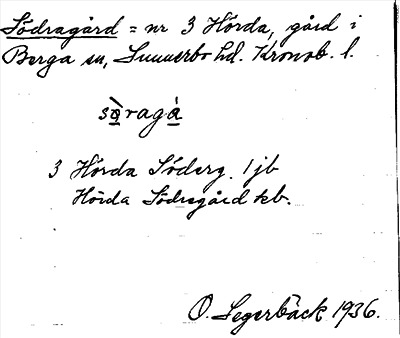 Södragård = nr 3 Hörda, gård i
Berga sn, Sunnerbo hd. Kronob. l.
sø̀ragá
3 Hörda Söderg. 1 jb
Hörda Södregård kb.
O. Segerbäck 1936.